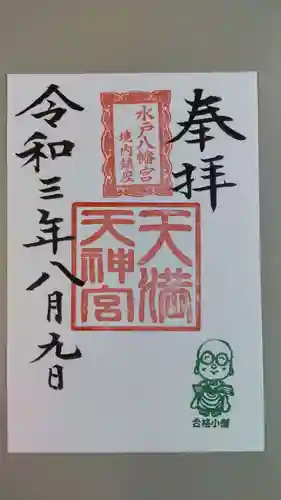 奉拝
水戸八幡宮
境内鎮座
天満
天神宮
令和三年八月九日
合格小僧